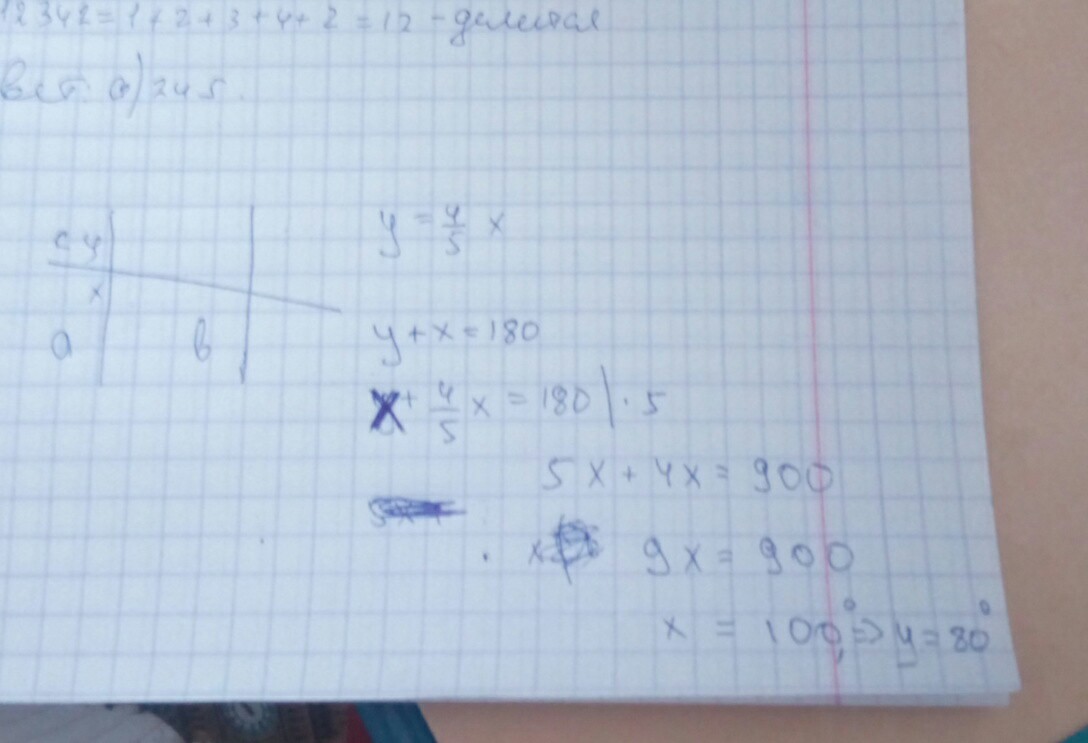 12342 = 1 + 2 + 3 + 4 + 2 = 12 - делится
а) 245.
с у
х
а в
y = 4/5 x
y + x = 180
x + 4/5 x = 180 | · 5
5x + 4x = 900
9x = 900
x = 100°, => y = 80°